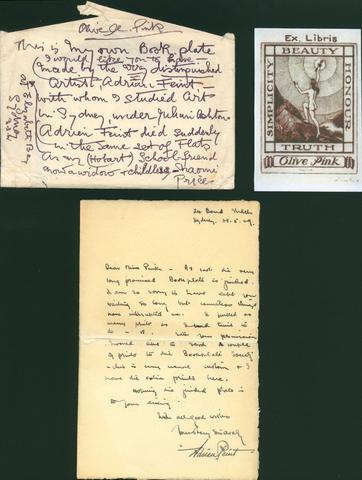 Olive M. Pink
This is my own Book plate
I would like you to have
made by the very distinguished
Artist Adrian Feint
with whom I studied Art
in Sydney, under Julian Ashton.
Adrian Feint died suddenly
in the same set of Flats
as my (Hobart) School friend
now a widow & childless Naomi
Price.
at Elizabeth Bay
Sydney
Ex. Libris
BEAUTY
SIMPLICITY
HONOUR
TRUTH
Olive Pink
24 Bond Street
Sydney. 28.5.29.
Dear Miss Pink - At last the very
long promised Bookplate is finished.
I am so sorry to have kept you
waiting so long but countless things
have interrupted me. I pulled as
many prints as I had time to
do - With your permission
I would like to send a couple
of prints to the Bookplate Society
- this is my usual custom & I
have the extra prints here.
Hoping the finished plate is
to your liking
With all good wishes
Yours very sincerely
Adrian Feint